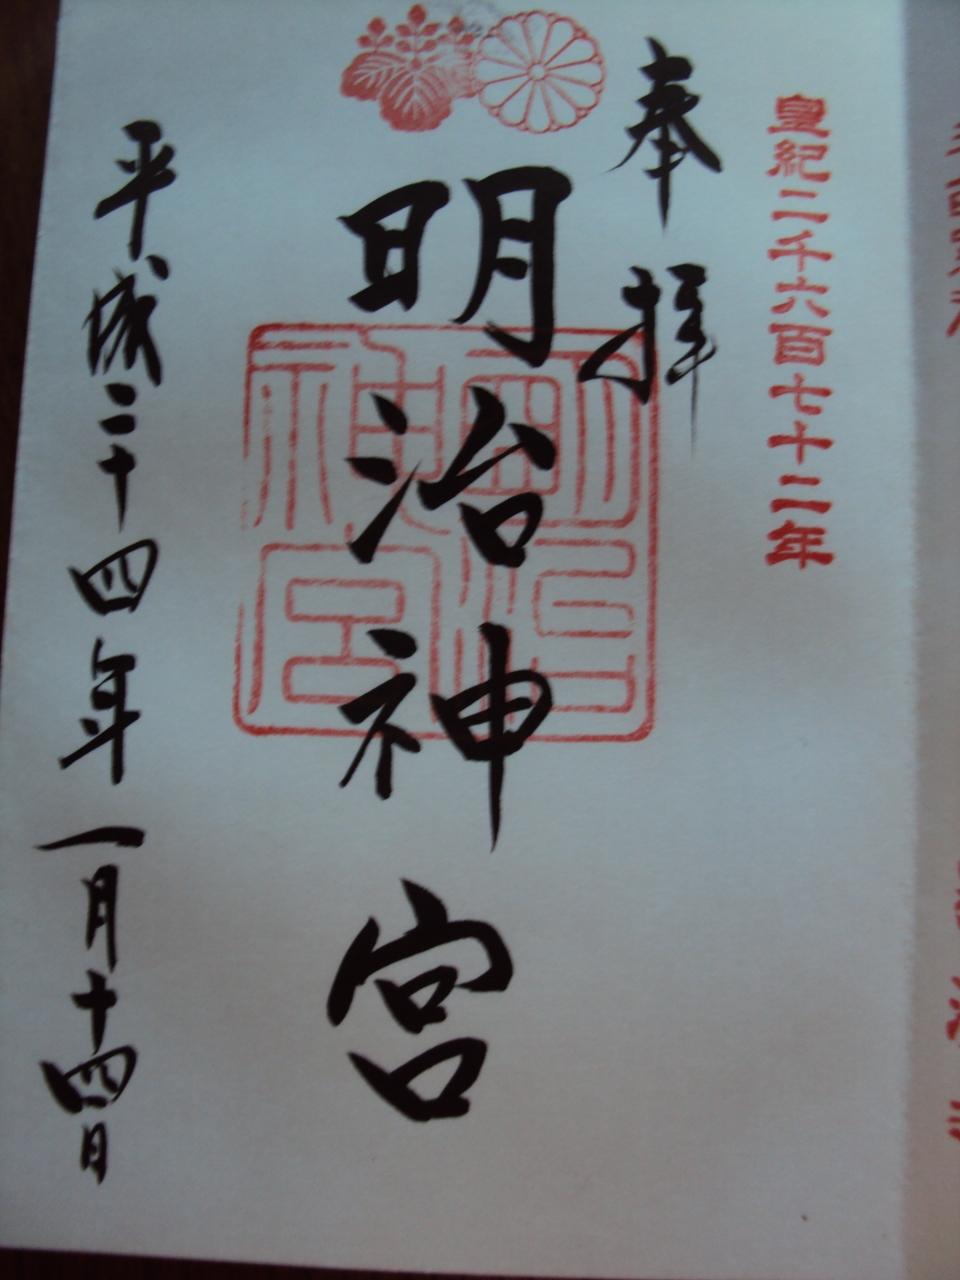 皇紀二千六百七十二年
奉拝
明治神宮
明治神宮
平成二十四年一月十四日